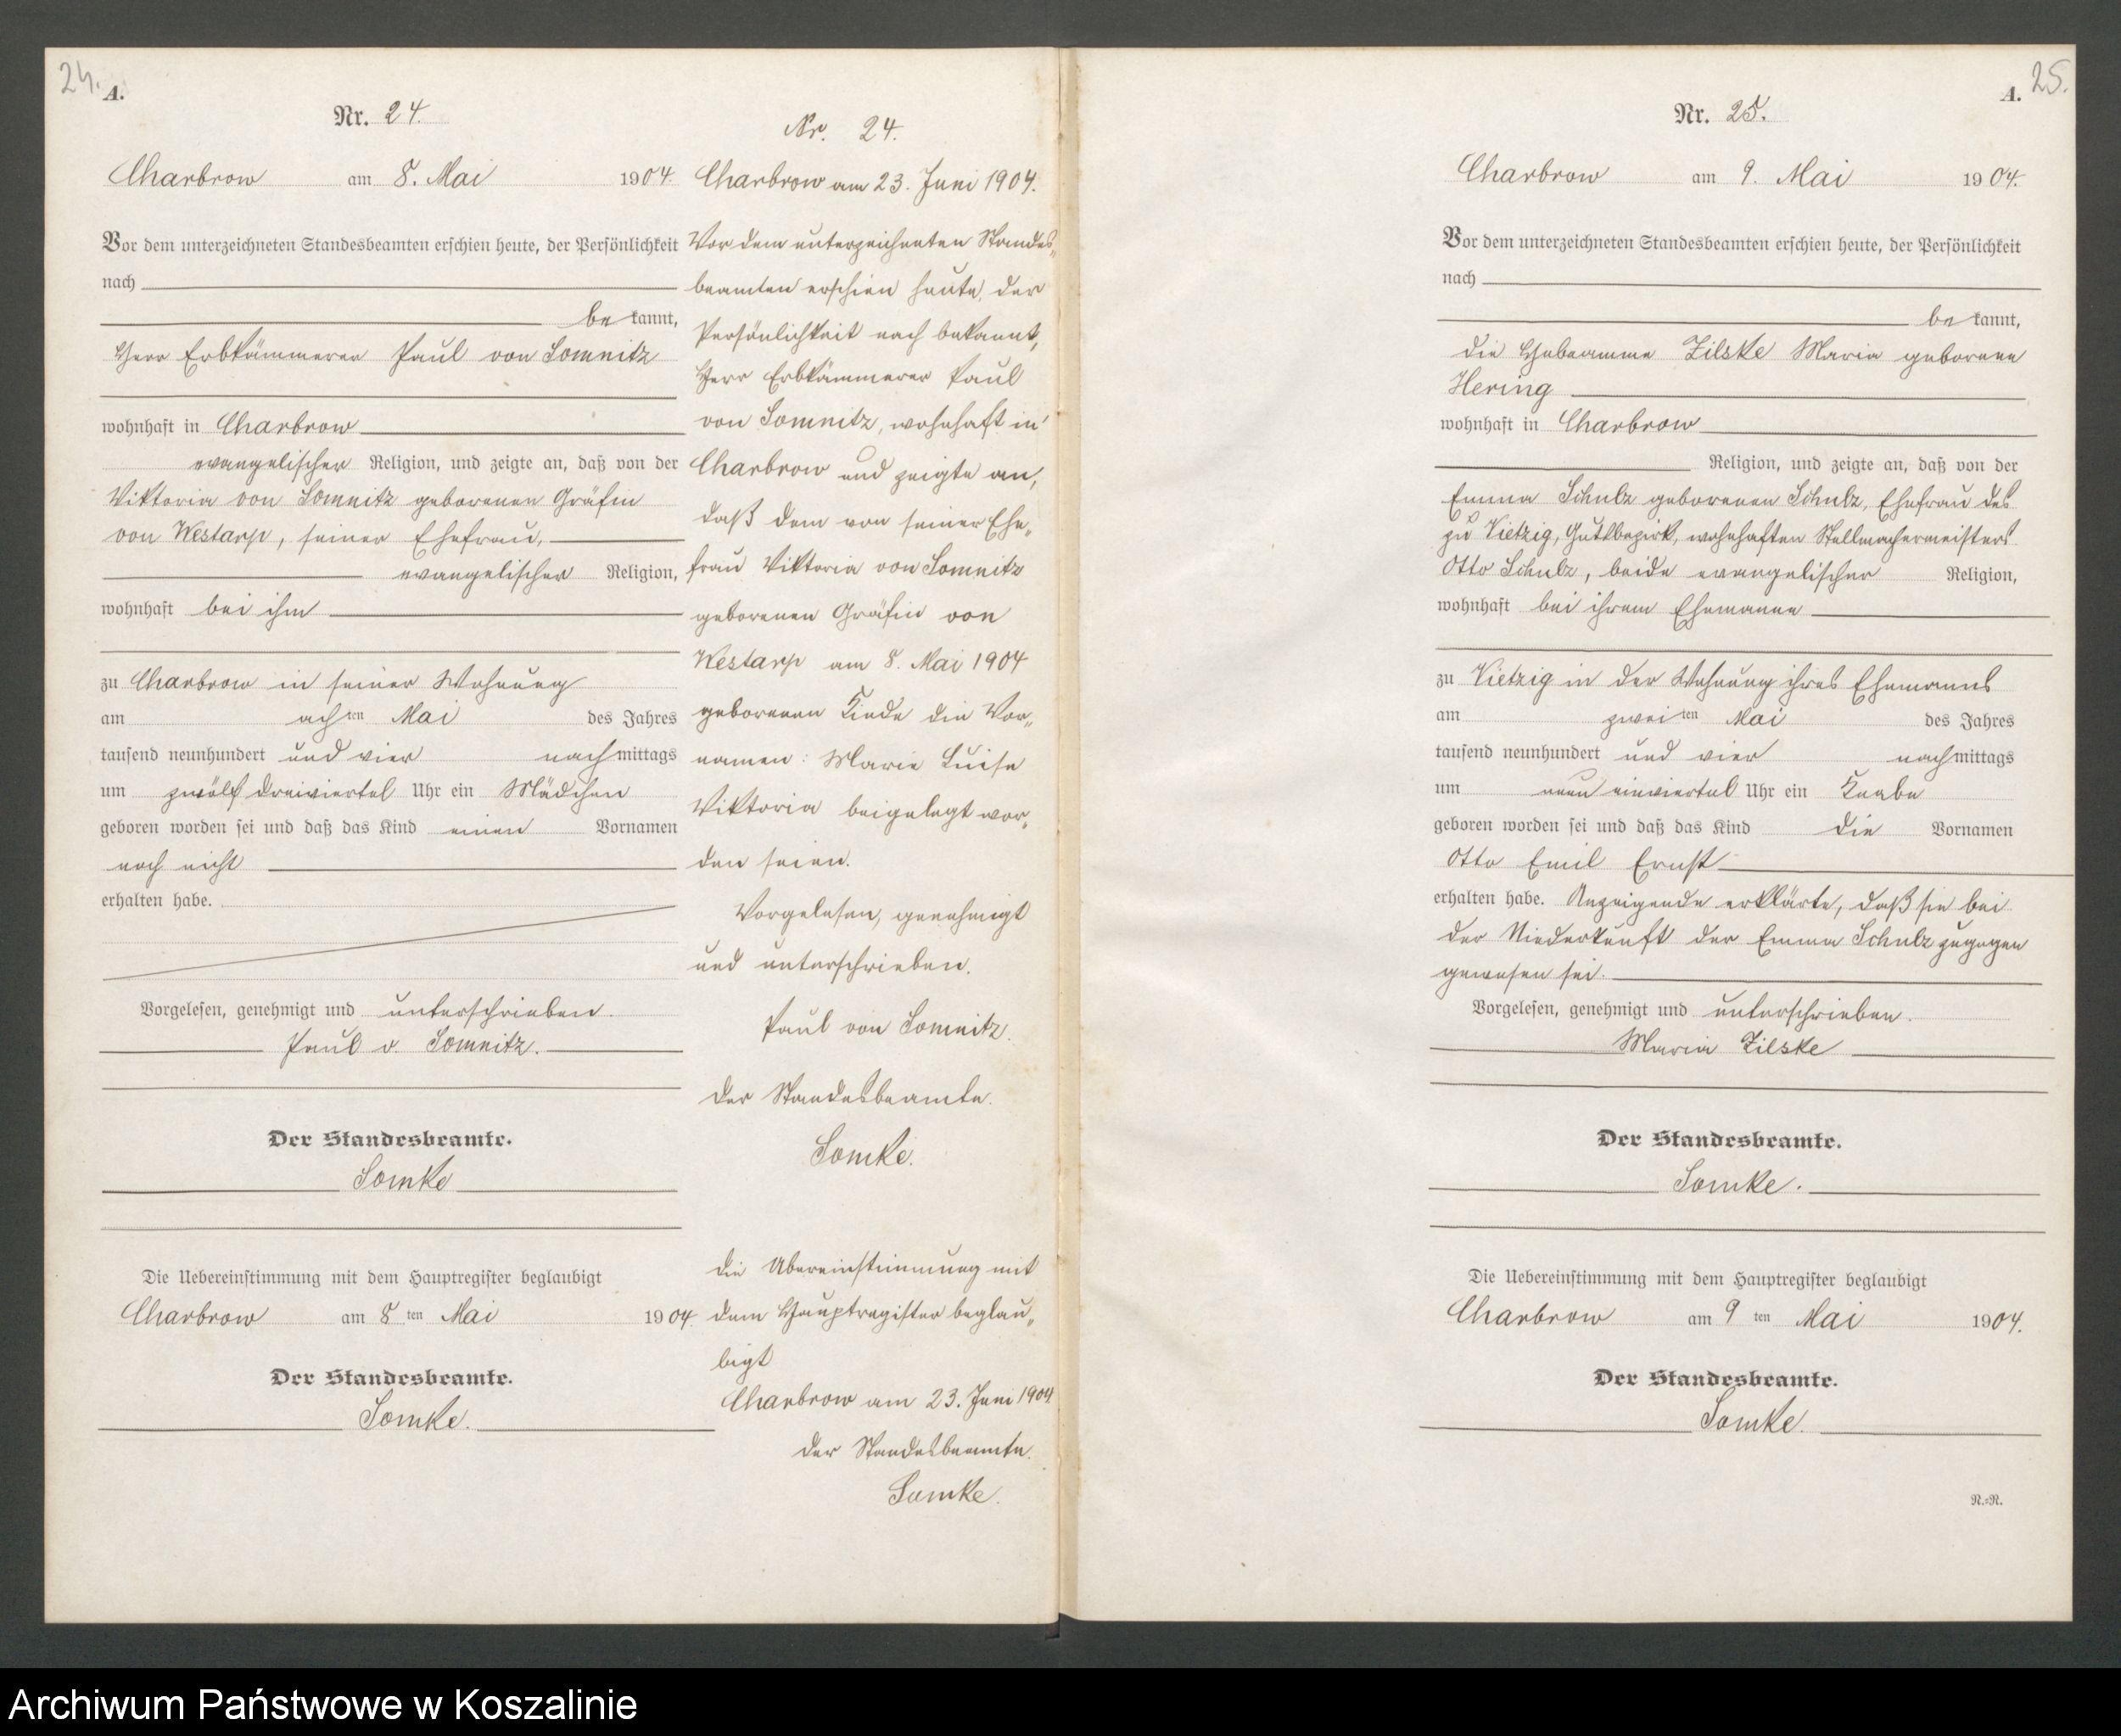 24.
A.
Nr. 24.
Charbrow am 8. Mai 1904.
Vor dem unterzeichneten Standesbeamten erschien heute, der Persönlichkeit
nach
be kannt,
Herr Erbkämmerer Paul von Somnitz
wohnhaft in Charbrow
evangelischer Religion, und zeigte an, daß von der
Viktoria von Somnitz geborenen Gräfin
von Westarp, seiner Ehefrau,
evangelischer Religion,
wohnhaft bei ihm
zu Charbrow in seiner Wohnung
am achten Mai des Jahres
tausend neunhundert und vier nachmittags
um zwölf dreiviertel Uhr ein Mädchen
geboren worden sei und daß das Kind einen Vornamen
noch nicht
erhalten habe.
Vorgelesen, genehmigt und unterschrieben.
Paul v. Somnitz.
Der Standesbeamte.
Somke
Die Uebereinstimmung mit dem Hauptregister beglaubigt
Charbrow am 8ten Mai 1904.
Der Standesbeamte.
Somke.
Nr. 24.
Charbrow am 23. Juni 1904.
Vor dem unterzeichneten Standes„
beamten erschien heute, der
Persönlichkeit nach bekannt,
Herr Erbkämmerer Paul
von Somnitz, wohnhaft in
Charbrow und zeigte an,
daß dem von seiner Ehe„
frau Viktoria von Somnitz
geborenen Gräfin von
Westarp am 8. Mai 1904
geborenen Kinde die Vor„
namen: Marie Luise
Viktoria beigelegt wor„
den seien.
Vorgelesen, genehmigt
und unterschrieben.
Paul von Somnitz.
Der Standesbeamte.
Somke.
Die Übereinstimmung mit
dem Hauptregister beglau„
bigt
Charbrow am 23. Juni 1904.
Der Standesbeamte.
Somke.
25.
A.
Nr. 25.
Charbrow am 9. Mai 1904.
Vor dem unterzeichneten Standesbeamten erschien heute, der Persönlichkeit
nach
be kannt,
die Hebeamme Zilske Maria geborene
Hering
wohnhaft in Charbrow
Religion, und zeigte an, daß von der
Emma Schulz geborenen Schulz, Ehefrau des
zu Vietzig, Gutsbezirk, wohnhaften Stellmachermeisters
Otto Schulz, beide evangelischer Religion,
wohnhaft bei ihrem Ehemanne
zu Vietzig in der Wohnung ihres Ehemanns
am zweiten Mai des Jahres
tausend neunhundert und vier nachmittags
um neun einviertel Uhr ein Knabe
geboren worden sei und daß das Kind die Vornamen
Otto Emil Ernst
erhalten habe. Anzeigende erklärte, daß sie bei
der Niederkunft der Emma Schulz zugegen
gewesen sei.
Vorgelesen, genehmigt und unterschrieben.
Maria Zilske
Der Standesbeamte.
Somke.
Die Uebereinstimmung mit dem Hauptregister beglaubigt
Charbrow am 9ten Mai 1904.
Der Standesbeamte.
Somke.
N.=N.
Archiwum Państwowe w Koszalinie